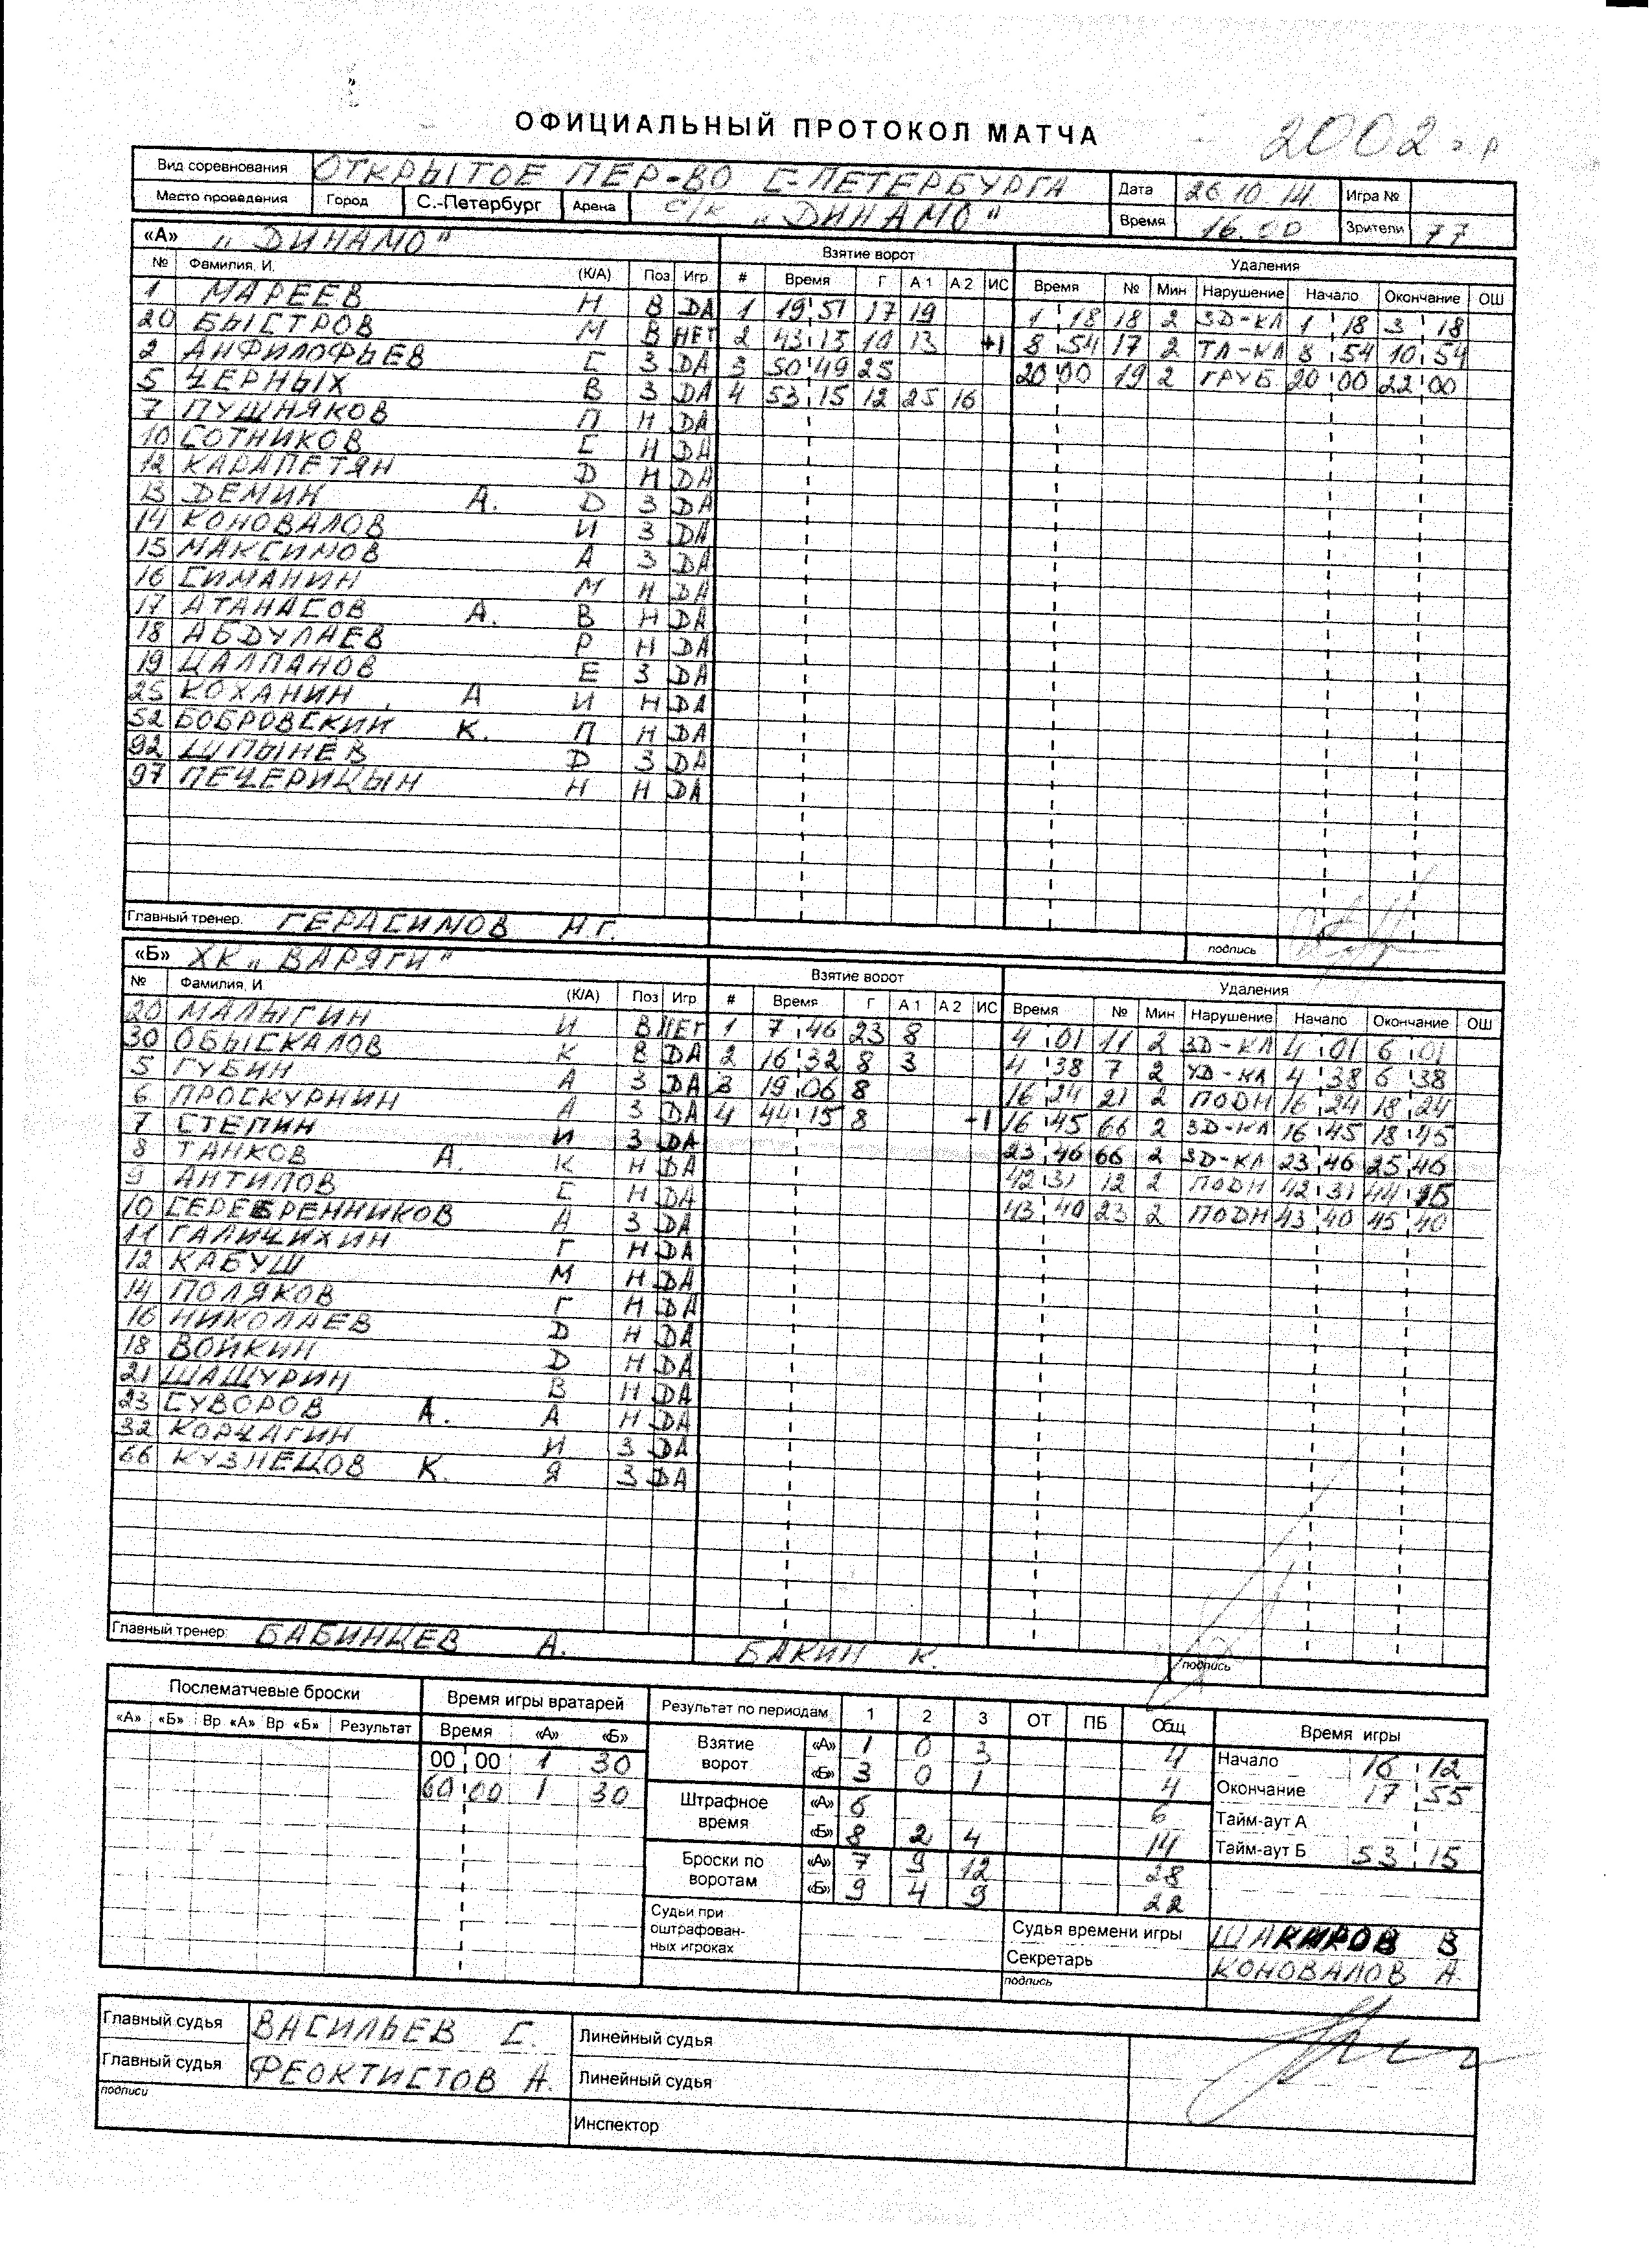 ОФИЦИАЛЬНЫЙ ПРОТОКОЛ МАТЧА 2002 г.р
Вид соревнования ОТКРЫТОЕ ПЕР-ВО С-ПЕТЕРБУРГА Дата 26 10 14 Игра №
Место проведения Город С.-Петербург Арена С/К „ДИНАМО" Время 16.00 Зрители 77
«А» „ДИНАМО" Взятие ворот Удаления
№ Фамилия, И. (К/А) Поз Игр # Время Г А 1 А 2 ИС Время № Мин Нарушение Начало Окончание ОШ
1 МАРЕЕВ Н В DA 1 19 51 17 19 1 18 18 2 ЗД-КЛ 1 18 3 18
20 БЫСТРОВ М В НЕТ 2 43 15 10 13 +1 8 54 17 2 ТЛ-КЛ 8 54 10 54
2 АНФИЛОФЬЕВ С З DA 3 50 49 25 20 00 19 2 ГРУБ 20 00 22 00
5 ЧЕРНЫХ В З DA 4 53 15 12 25 16
7 ПУШНЯКОВ П Н DA
10 СОТНИКОВ С Н DA
12 КАРАПЕТЯН D Н DA
13 ДЕМИН А. D З DA
14 КОНОВАЛОВ И З DA
15 МАКСИМОВ А З DA
16 СИМАНИН М Н DA
17 АТАНАСОВ А. В Н DA
18 АБДУЛАЕВ Р Н DA
19 ЦАЛПАНОВ Е З DA
25 КОХАНИН А И Н DA
52 БОБРОВСКИЙ К. П Н DA
92 ШПЫНЕВ D З DA
97 ПЕЧЕРИЦЫН Н Н DA
Главный тренер. ГЕРАСИМОВ Н.Г. подпись
«Б» ХК „ВАРЯГИ" Взятие ворот Удаления
№ Фамилия, И (К/А) Поз Игр # Время Г А 1 А 2 ИС Время № Мин Нарушение Начало Окончание ОШ
20 МАЛЫГИН И В НЕТ 1 7 46 23 8 4 01 11 2 ЗД-КЛ 4 01 6 01
30 ОБЫСКАЛОВ К В DA 2 16 32 8 3 4 38 7 2 УД-КЛ 4 38 6 38
5 ГУБИН А З DA 3 19 06 8 16 24 21 2 ПОДН 16 24 18 24
6 ПРОСКУРНИН А З DA 4 44 15 8 -1 16 45 66 2 ЗД-КЛ 16 45 18 45
7 СТЕПИН И З DA 23 46 66 2 ЗД-КЛ 23 46 25 46
8 ТАНКОВ А. К Н DA 42 31 12 2 ПОДН 42 31 44 15
9 АНТИПОВ С Н DA 43 40 23 2 ПОДН 43 40 45 40
10 СЕРЕБРЕННИКОВ А З DA
11 ГАЛИЧИХИН Г Н DA
12 КАБУШ М Н DA
14 ПОЛЯКОВ Г Н DA
16 НИКОЛАЕВ D Н DA
18 ВОЙКИН D Н DA
21 ШАЩУРИН В Н DA
23 СУВОРОВ А. А Н DA
32 КОРЧАГИН И З DA
66 КУЗНЕЦОВ К. Я З DA
Главный тренер: БАБИНЦЕВ А. БАКИН К. подпись
Послематчевые броски Время игры вратарей Результат по периодам 1 2 3 ОТ ПБ Общ Время игры
«А» «Б» Вр «А» Вр «Б» Результат Время «А» «Б»
00 00 1 30 Взятие ворот «А» 1 0 3 4 Начало 16 12
60 00 1 30 «Б» 3 0 1 4 Окончание 17 55
Штрафное время «А» 6 6 Тайм-аут А
«Б» 8 2 4 14 Тайм-аут Б 53 15
Броски по воротам «А» 7 9 12 28
«Б» 9 4 9 22
Судьи при оштрафован- ных игроках Судья времени игры ШАКИРОВ В
Секретарь КОНОВАЛОВ А.
подпись
Главный судья ВАСИЛЬЕВ С. Линейный судья
Главный судья ФЕОКТИСТОВ А. Линейный судья
подписи Инспектор